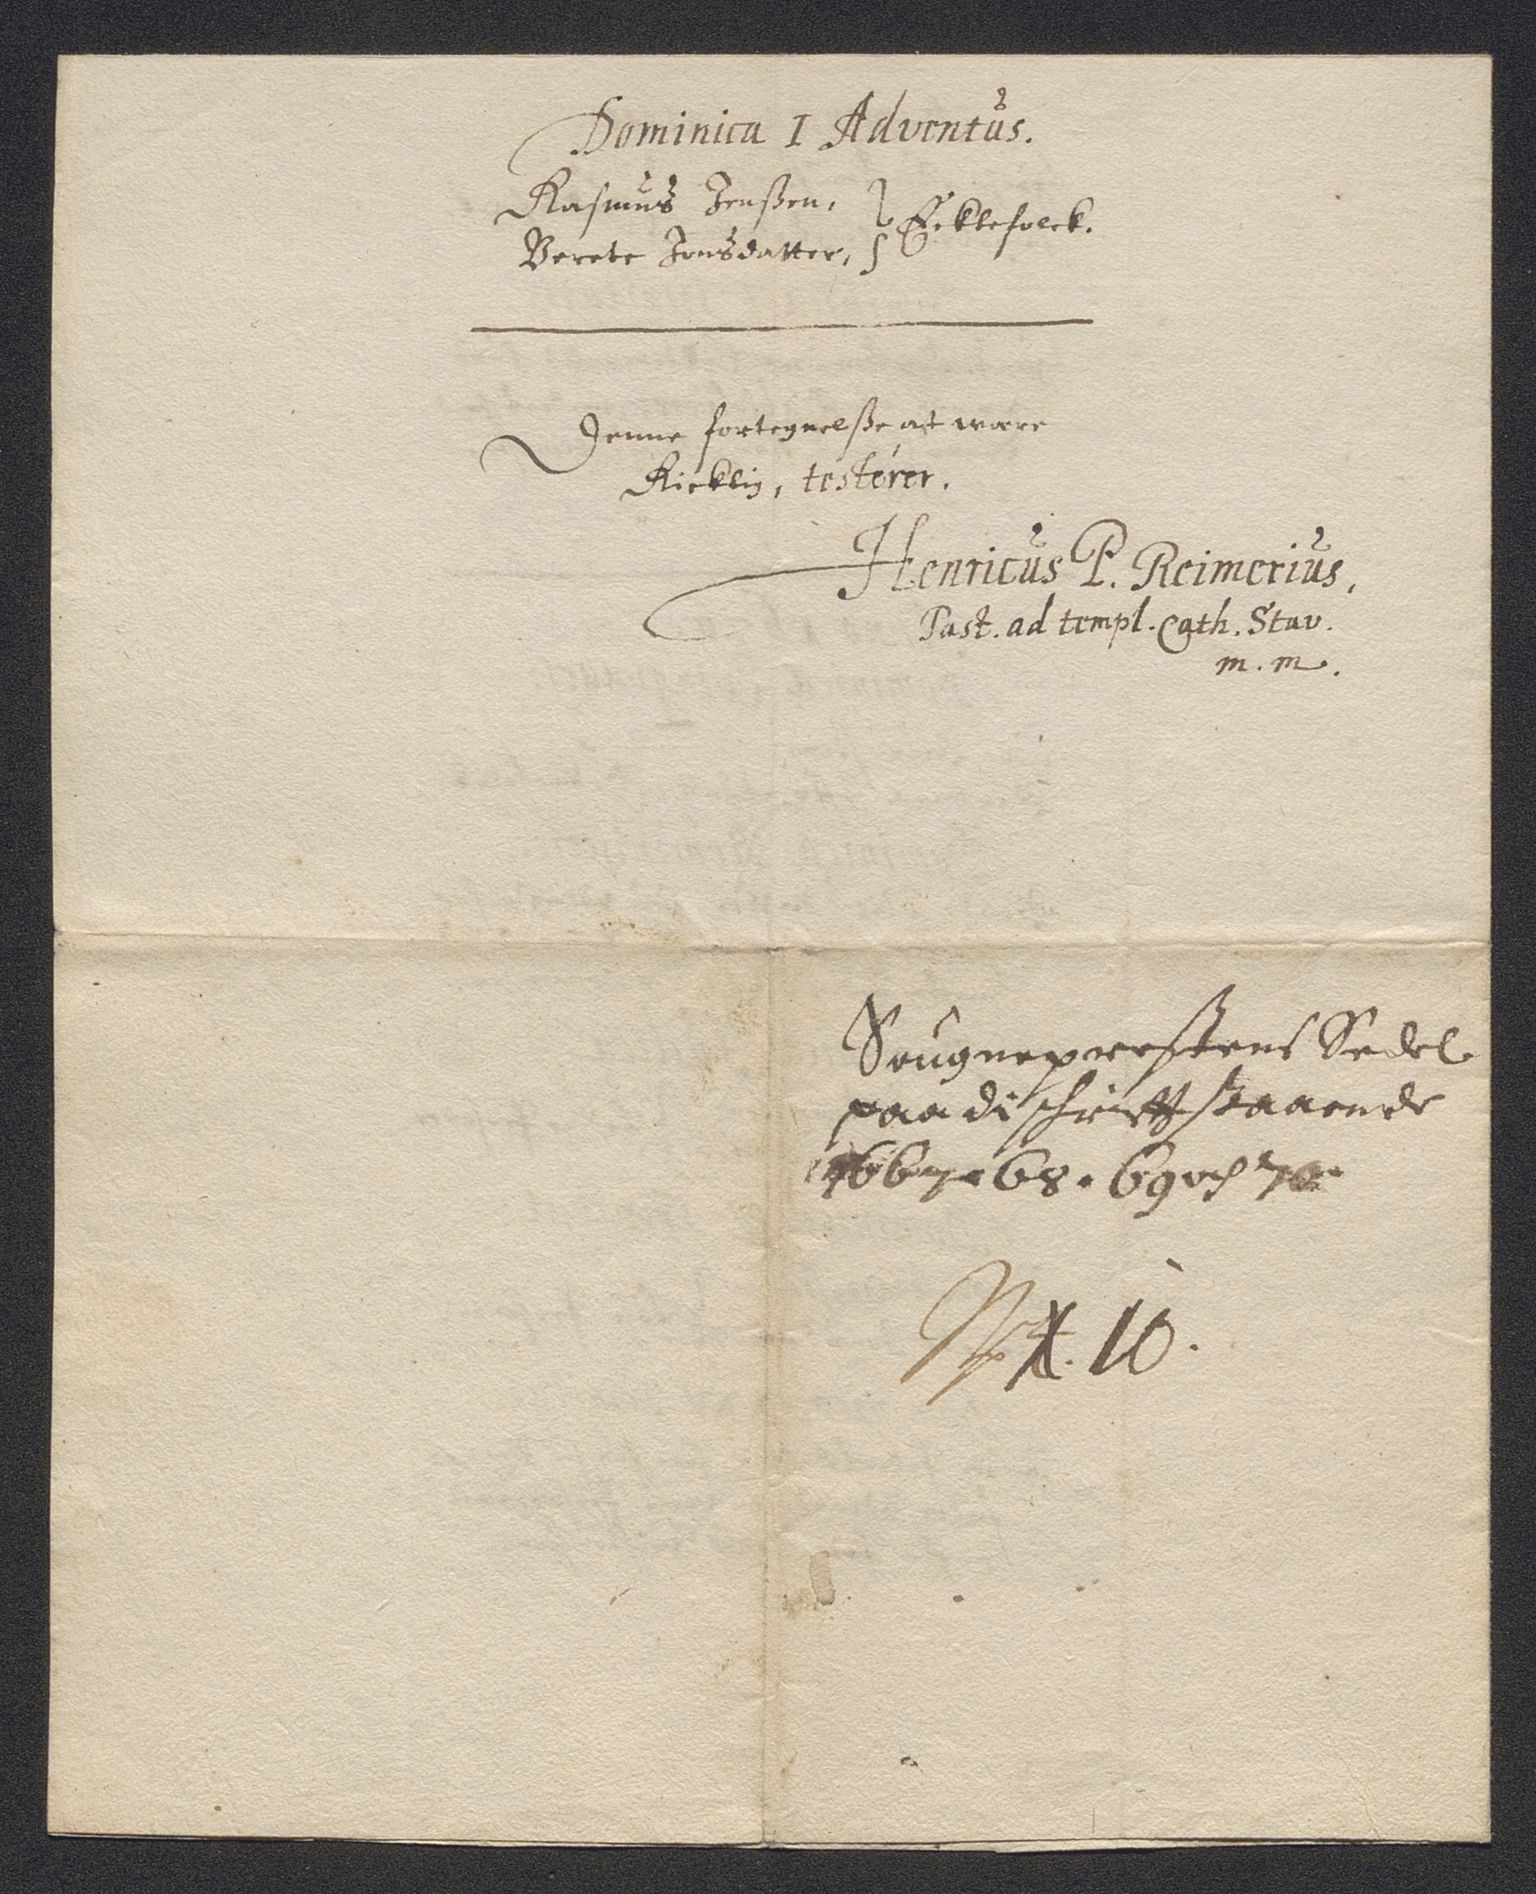 Dominica I Adventus.
Rasmus Jenßen, } Ecktefolck.
Berete Jonsdatter,
Denne fortegnelße at were
Ricktig, testerer.
Henricus P. Reimerius,
Past. ad templ. Cath. Stav.
m. m.
Sougneprestens Sedel
paa di schrifft staaende
1667. 68. 69 och 70.
No 10.